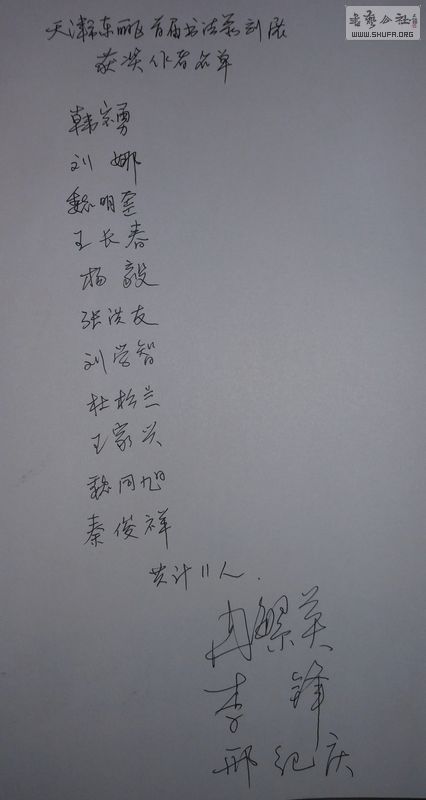 书艺公社
WWW.SHUFA.ORG
天津东丽区首届书法篆刻展
获奖作者名单
韩家勇
刘娜
魏明奎
王长春
杨毅
张洪友
刘学智
杜松兰
王家兴
魏同旭
秦俊祥
共计11人.
冉繁英
李锋
邢纪庆